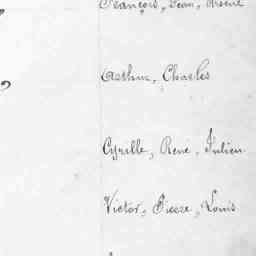 François, Jean, Arsène
Arthur, Charles
Cyrille, René, Julien
Victor, Pierre, Louis